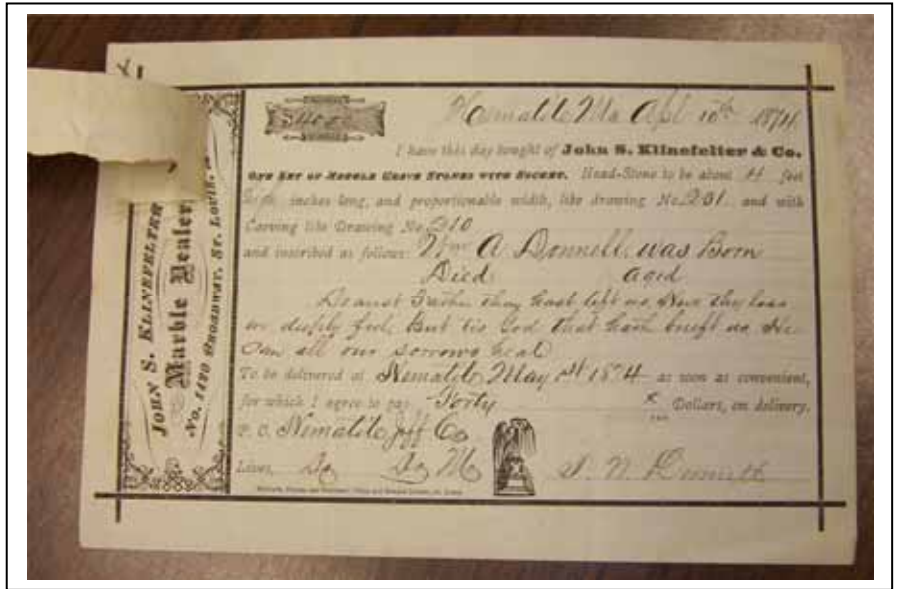 JOHN S. KLINEFELTER
Marble Dealer,
No. 1420 BROADWAY, ST. LOUIS,
$40.00
Hematite Mo Apl 10th 1874
I have this day bought of John S. Klinefelter & Co.
ONE SET OF MARBLE GRAVE STONES WITH SOCKET. Head-Stone to be about 4 feet
inches long, and proportionable width, like drawing No. 201 and with
Carving like Drawing No. 210
and inscribed as follows: Wm A Donnell was Born
Died aged
Dearest Father thou hast left us, Now thy loss
we deeply feel But tis God that hath breft us He
Can all our sorrows heal
To be delivered at Hematite May 1874 as soon as convenient,
for which I agree to pay Forty Dollars, on delivery.
P. O. Hematite Jeff Co
Lives,